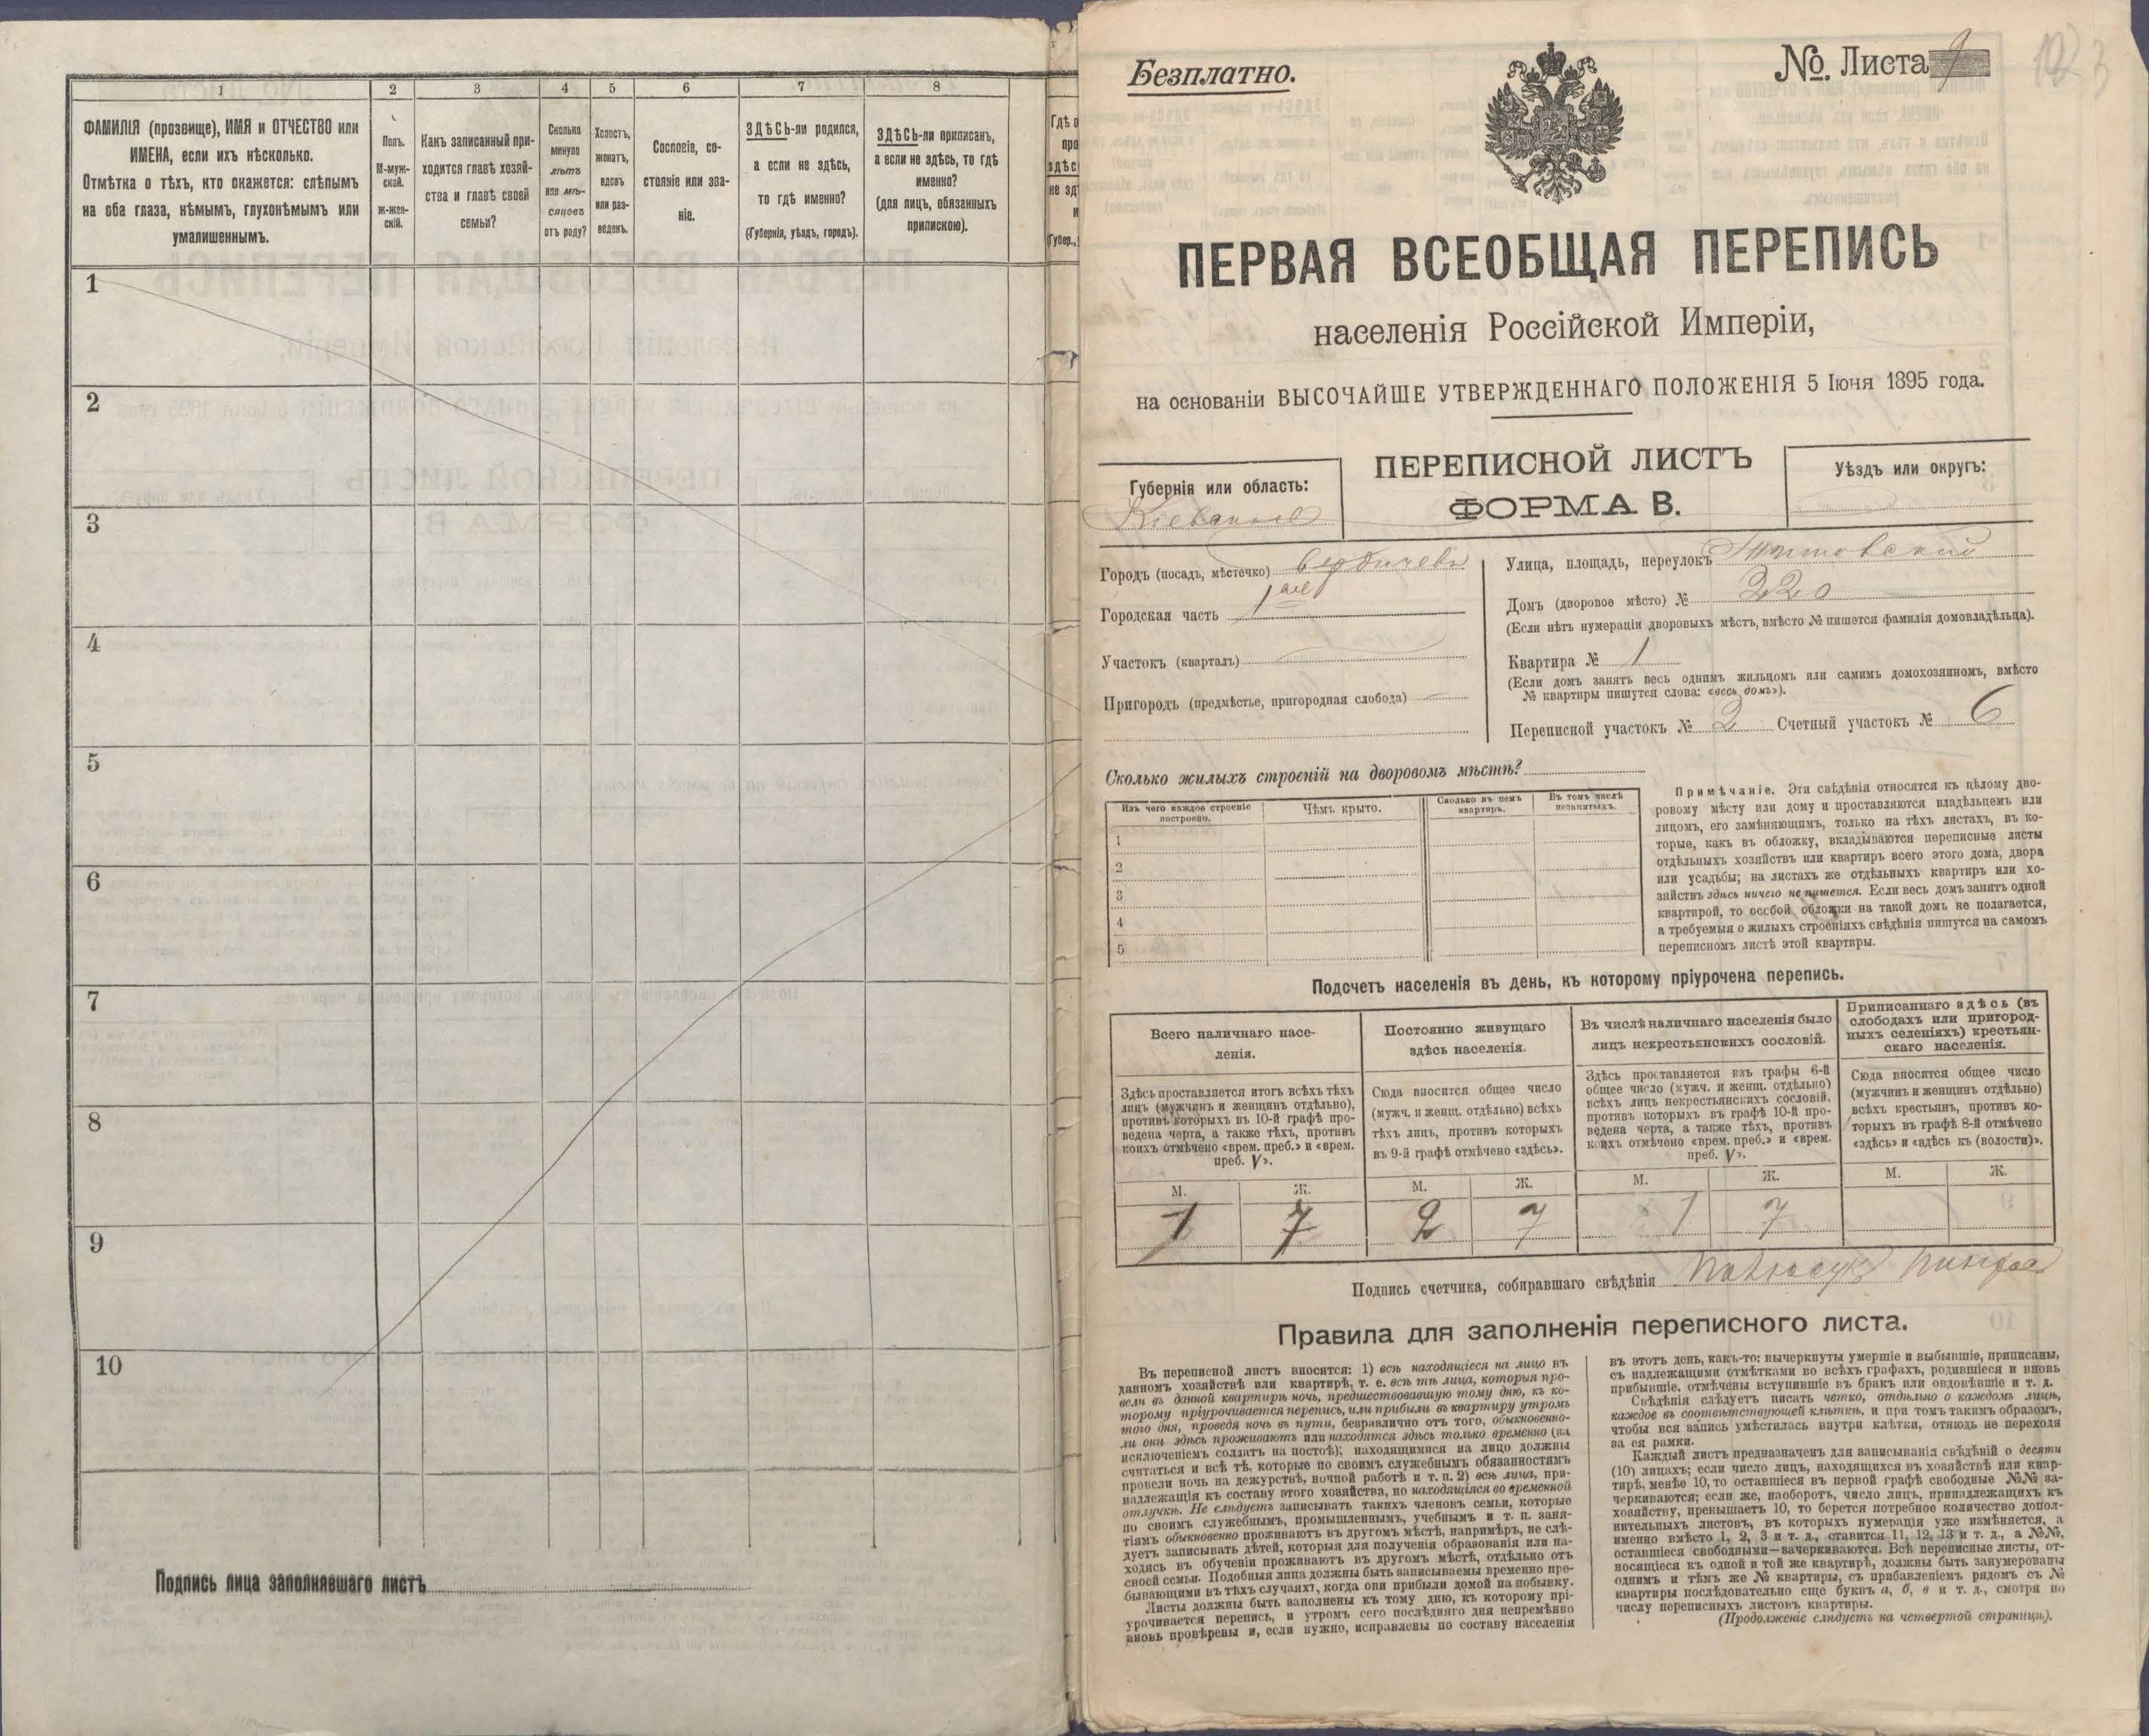 1
2
3
4
5
6
7
8
ФАМИЛІЯ (прозвище), ИМЯ и ОТЧЕСТВО или
ИМЕНА, если ихъ нѣсколько.
Отмѣтка о тѣхъ, кто окажется: слѣпымъ
на оба глаза, нѣмымъ, глухонѣмымъ или
умалишеннымъ.
Полъ.
М-муж-
ской.
Ж-жен-
скій.
Какъ записанный при-
ходится главѣ хозяй-
ства и главѣ своей
семьи?
Сколько
минуло
лѣтъ
или мѣ-
сяцевъ
отъ роду?
Холостъ,
женатъ,
вдовъ
или раз-
веденъ.
Сословіе, со-
стояніе или зва-
ніе.
ЗДѢСЬ-ли родился,
а если не здѣсь,
то гдѣ именно?
(Губернія, уѣздъ, городъ).
ЗДѢСЬ-ли приписанъ,
а если не здѣсь, то гдѣ
именно?
(для лицъ, обязанныхъ
припискою).
1
2
3
4
5
6
7
8
9
10
Подпись лица заполнявшаго листъ
Безплатно.
№. Листа
ПЕРВАЯ ВСЕОБЩАЯ ПЕРЕПИСЬ
населенія Россійской Имперіи,
на основаніи ВЫСОЧАЙШЕ УТВЕРЖДЕННАГО ПОЛОЖЕНІЯ 5 Іюня 1895 года.
ПЕРЕПИСНОЙ ЛИСТЪ
ФОРМА В.
Губернія или область:
Кіевская
Уѣздъ или округъ:
Городъ (посадъ, мѣстечко) Бердичевъ
Городская часть 1ая
Участокъ (кварталъ)
Пригородъ (предмѣстье, пригородная слобода)
Улица, площадь, переулокъ
Домъ (дворовое мѣсто) № 220
(Если нѣтъ нумераціи дворовыхъ мѣстъ, вмѣсто № пишется фамилія домовладѣльца).
Квартира № 1
(Если домъ занятъ весь однимъ жильцомъ или самимъ домохозяиномъ, вмѣсто
№ квартиры пишутся слова: «весь домъ»).
Переписной участокъ № 2 Счетный участокъ № 6
Сколько жилыхъ строеній на дворовомъ мѣстѣ?
Изъ чего каждое строеніе
построено.
Чѣмъ крыто.
Сколько въ немъ
квартиръ.
Въ томъ числѣ
незанятыхъ.
1
2
3
4
5
Примѣчаніе. Эти свѣдѣнія относятся къ цѣлому дво-
ровому мѣсту или дому и проставляются владѣльцемъ или
лицомъ, его замѣняющимъ, только на тѣхъ листахъ, въ ко-
торые, какъ въ обложку, вкладываются переписные листы
отдѣльныхъ хозяйствъ или квартиръ всего этого дома, двора
или усадьбы; на листахъ же отдѣльныхъ квартиръ или хо-
зяйствъ здѣсь ничего не пишется. Если весь домъ занятъ одной
квартирой, то особой обложки на такой домъ не полагается,
а требуемыя о жилыхъ строеніяхъ свѣдѣнія пишутся на самомъ
переписномъ листѣ этой квартиры.
Подсчетъ населенія въ день, къ которому пріурочена перепись.
Всего наличнаго насе-
ленія.
Постоянно живущаго
здѣсь населенія.
Въ числѣ наличнаго населенія было
лицъ некрестьянскихъ сословій.
Приписаннаго здѣсь (въ
слободахъ или пригород-
ныхъ селеніяхъ) крестьян-
скаго населенія.
Здѣсь проставляется итогъ всѣхъ тѣхъ
лицъ (мужчинъ и женщинъ отдѣльно),
противъ которыхъ въ 10-й графѣ про-
ведена черта, а также тѣхъ, противъ
коихъ отмѣчено «врем. преб.» и «врем.
преб. V».
Сюда вносится общее число
(мужч. и женщ. отдѣльно) всѣхъ
тѣхъ лицъ, противъ которыхъ
въ 9-й графѣ отмѣчено «здѣсь».
Здѣсь проставляется изъ графы 6-й
общее число (мужч. и женщ. отдѣльно)
всѣхъ лицъ некрестьянскихъ сословій,
противъ которыхъ въ графѣ 10-й про-
ведена черта, а также тѣхъ, противъ
коихъ отмѣчено «врем. преб.» и «врем.
преб. V».
Сюда вносится общее число
(мужчинъ и женщинъ отдѣльно)
всѣхъ крестьянъ, противъ ко-
торыхъ въ графѣ 8-й отмѣчено
«здѣсь» и «здѣсь къ (волости)».
М. Ж. М. Ж. М. Ж. М. Ж.
1 7 2 7 1 7
Подпись счетчика, собиравшаго свѣдѣнія
Правила для заполненія переписного листа.
Въ переписной листъ вносятся: 1) всѣ находящіеся на лицо въ
данномъ хозяйствѣ или квартирѣ, т. е. всѣ тѣ лица, которыя про-
вели въ данной квартирѣ ночь, предшествовавшую тому дню, къ ко-
торому пріурочивается перепись, или прибыли въ квартиру утромъ
того дня, проведя ночь въ пути, безразлично отъ того, обыкновенно-
ли они здѣсь проживаютъ или находятся здѣсь только временно (за
исключеніемъ солдатъ на постоѣ); находящимися на лицо должны
считаться и всѣ тѣ, которые по своимъ служебнымъ обязанностямъ
провели ночь на дежурствѣ, ночной работѣ и т. п. 2) всѣ лица, при-
надлежащія къ составу этого хозяйства, но находящіяся во временной
отлучкѣ. Не слѣдуетъ записывать такихъ членовъ семьи, которые
по своимъ служебнымъ, промышленнымъ, учебнымъ и т. п. заня-
тіямъ обыкновенно проживаютъ въ другомъ мѣстѣ, напримѣръ, не слѣ-
дуетъ записывать дѣтей, которыя для полученія образованія или на-
ходясь въ обученіи проживаютъ въ другомъ мѣстѣ, отдѣльно отъ
своей семьи. Подобныя лица должны быть записываемы временно пре-
бывающими въ тѣхъ случаяхъ, когда они прибыли домой на побывку.
Листы должны быть заполнены къ тому дню, къ которому прі-
урочивается перепись, и утромъ сего послѣдняго дня непремѣнно
вновь провѣрены и, если нужно, исправлены по составу населенія
въ этотъ день, какъ-то: вычеркнуты умершіе и выбывшіе, приписаны,
съ надлежащими отмѣтками во всѣхъ графахъ, родившіеся и вновь
прибывшіе, отмѣчены вступившіе въ бракъ или овдовѣвшіе и т. д.
Свѣдѣнія слѣдуетъ писать четко, отдѣльно о каждомъ лицѣ,
каждое въ соотвѣтствующей клѣткѣ, и при томъ такимъ образомъ,
чтобы вся запись умѣстилась внутри клѣтки, отнюдь не переходя
за ея рамки.
Каждый листъ предназначенъ для записыванія свѣдѣній о десяти
(10) лицахъ; если число лицъ, находящихся въ хозяйствѣ или квар-
тирѣ, менѣе 10, то оставшіеся въ первой графѣ свободные №№ за-
черкиваются; если же, наоборотъ, число лицъ, принадлежащихъ къ
хозяйству, превышаетъ 10, то берется потребное количество допол-
нительныхъ листовъ, въ которыхъ нумерація уже измѣняется, а
именно вмѣсто 1, 2, 3 и т. д., ставится 11, 12, 13 и т. д., а №№,
оставшіеся свободными—зачеркиваются. Всѣ переписные листы, от-
носящіеся къ одной и той же квартирѣ, должны быть занумерованы
однимъ и тѣмъ же № квартиры, съ прибавленіемъ рядомъ съ №
квартиры послѣдовательно еще буквъ а, б, в и т. д., смотря по
числу переписныхъ листовъ квартиры.
(Продолженіе слѣдуетъ на четвертой страницѣ).